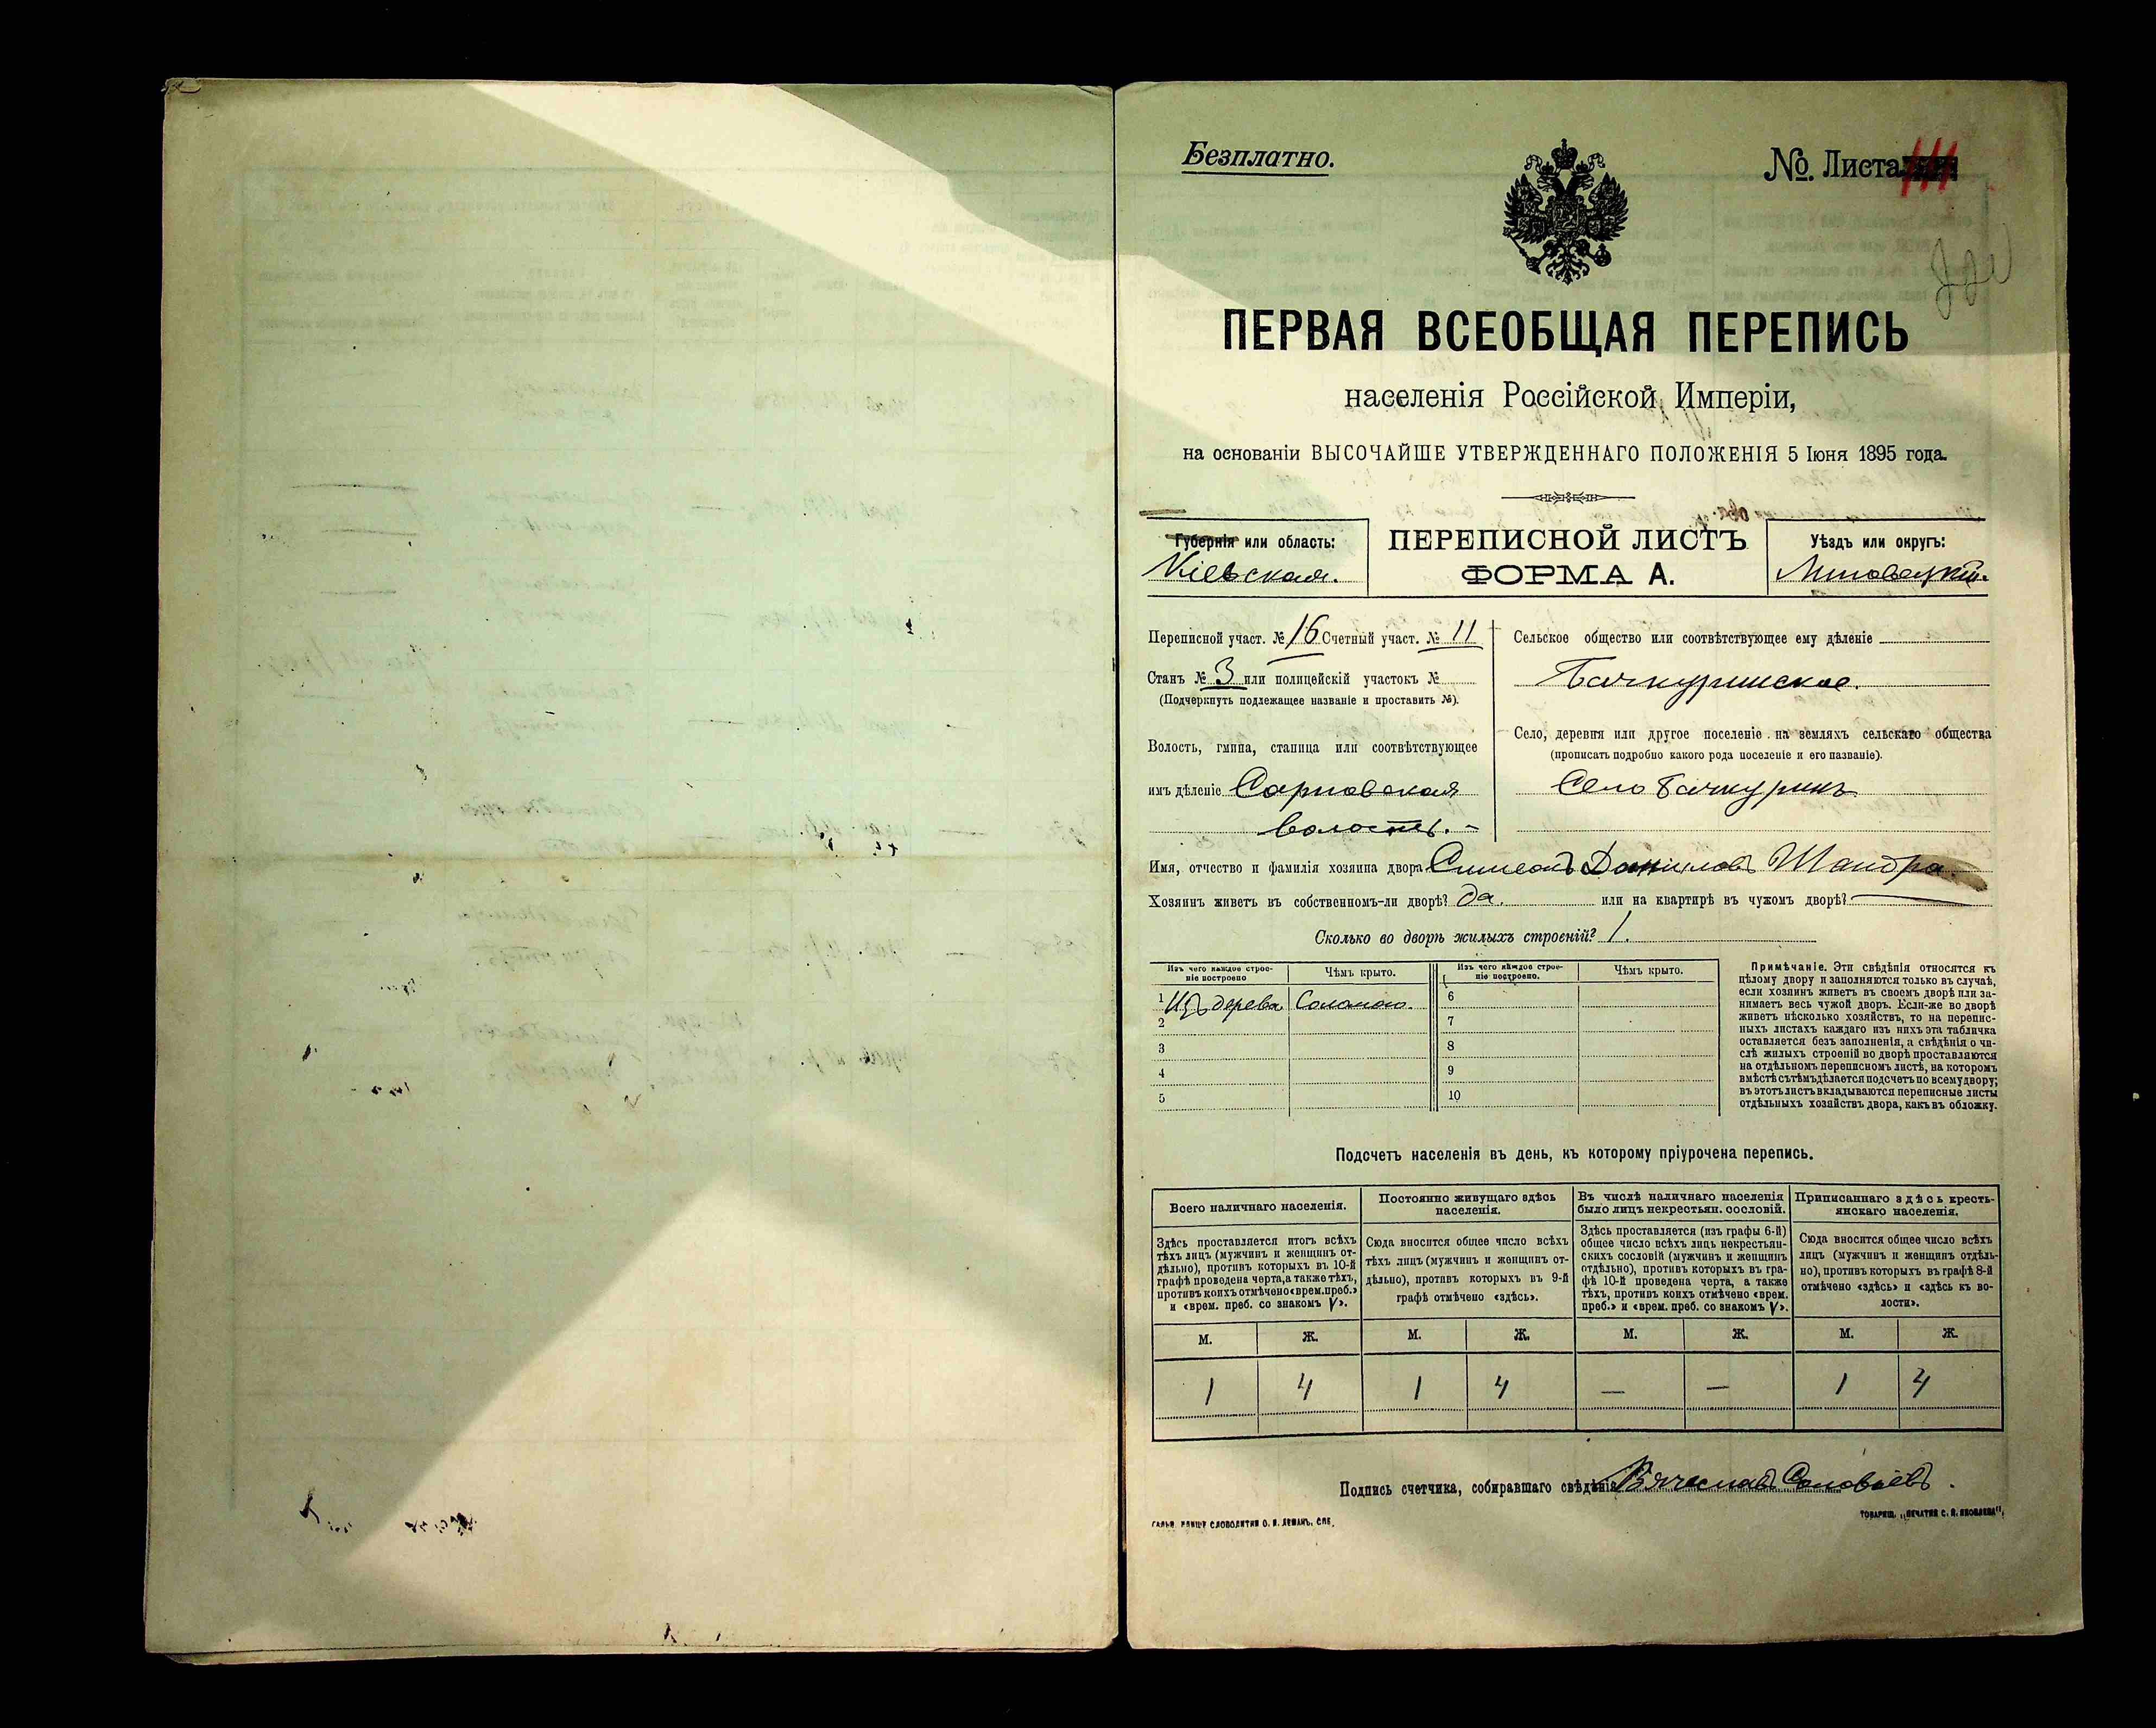 Безплатно.
№ Листа 111
ПЕРВАЯ ВСЕОБЩАЯ ПЕРЕПИСЬ
населенія Россійской Имперіи,
на основаніи ВЫСОЧАЙШЕ УТВЕРЖДЕННАГО ПОЛОЖЕНІЯ 5 Іюня 1895 года.
Губернія или область:
Кіевская.
ПЕРЕПИСНОЙ ЛИСТЪ
ФОРМА А.
Уѣздъ или округъ:
Липовецкій.
Переписной участ. № 16 Счетный участ. № 11
Станъ № 3 или полицейскій участокъ №
(Подчеркнуть подлежащее названіе и проставить №).
Волость, гмина, станица или соотвѣтствующее
имъ дѣленіе
волость. -
Сельское общество или соотвѣтствующее ему дѣленіе
Бачкуринское.
Село, деревня или другое поселеніе на земляхъ сельскаго общества
(прописать подробно какого рода поселеніе и его названіе).
Село Бачкуринъ
Имя, отчество и фамилія хозяина двора Симеонъ Даниловъ Шандра.
Хозяинъ живетъ въ собственномъ-ли дворѣ? да. или на квартирѣ въ чужомъ дворѣ? —
Сколько во дворѣ жилыхъ строеній? 1.
Изъ чего каждое строе-
ніе построено
Чѣмъ крыто.
Изъ чего каждое строе-
ніе построено.
Чѣмъ крыто.
1 Изъ дерева Соломою.
2
3
4
5
6
7
8
9
10
Примѣчаніе. Эти свѣдѣнія относятся къ
цѣлому двору и заполняются только въ случаѣ,
если хозяинъ живетъ въ своемъ дворѣ или за-
нимаетъ весь чужой дворъ. Если-же во дворѣ
живетъ нѣсколько хозяйствъ, то на перепис-
ныхъ листахъ каждаго изъ нихъ эта табличка
оставляется безъ заполненія, а свѣдѣнія о чи-
слѣ жилыхъ строеній во дворѣ проставляются
на отдѣльномъ переписномъ листѣ, на которомъ
вмѣстѣ съ тѣмъ дѣлается подсчетъ по всему двору;
въ этотъ листъ вкладываются переписные листы
отдѣльныхъ хозяйствъ двора, какъ въ обложку.
Подсчетъ населенія въ день, къ которому пріурочена перепись.
Всего наличнаго населенія.
Здѣсь проставляется итогъ всѣхъ
тѣхъ лицъ (мужчинъ и женщинъ от-
дѣльно), противъ которыхъ въ 10-й
графѣ проведена черта, а также тѣхъ,
противъ коихъ отмѣчено «врем. преб.»
и «врем. преб. со знакомъ V».
Постоянно живущаго здѣсь
населенія.
Сюда вносится общее число всѣхъ
тѣхъ лицъ (мужчинъ и женщинъ от-
дѣльно), противъ которыхъ въ 9-й
графѣ отмѣчено «здѣсь».
Въ числѣ наличнаго населенія
было лицъ некрестьян. сословій.
Здѣсь проставляется (изъ графы 6-й)
общее число всѣхъ лицъ некрестьян-
скихъ сословій (мужчинъ и женщинъ
отдѣльно), противъ которыхъ въ гра-
фѣ 10-й проведена черта, а также
тѣхъ, противъ коихъ отмѣчено «врем.
преб.» и «врем. преб. со знакомъ V».
Приписаннаго здѣсь кресть-
янскаго населенія.
Сюда вносится общее число всѣхъ
лицъ (мужчинъ и женщинъ отдѣль-
но), противъ которыхъ въ графѣ 8-й
отмѣчено «здѣсь» и «здѣсь къ во-
лости».
М. Ж. М. Ж. М. Ж. М. Ж.
1 4 1 4 — — 1 4
Подпись счетчика, собиравшаго свѣдѣнія Вячеславъ Соловьевъ.
СЛОВОЛИТНЯ О. И. ЛЕМАНЪ, СПБ.
ТОВАРИЩ. „ПЕЧАТНЯ С. П. ЯКОВЛЕВА".